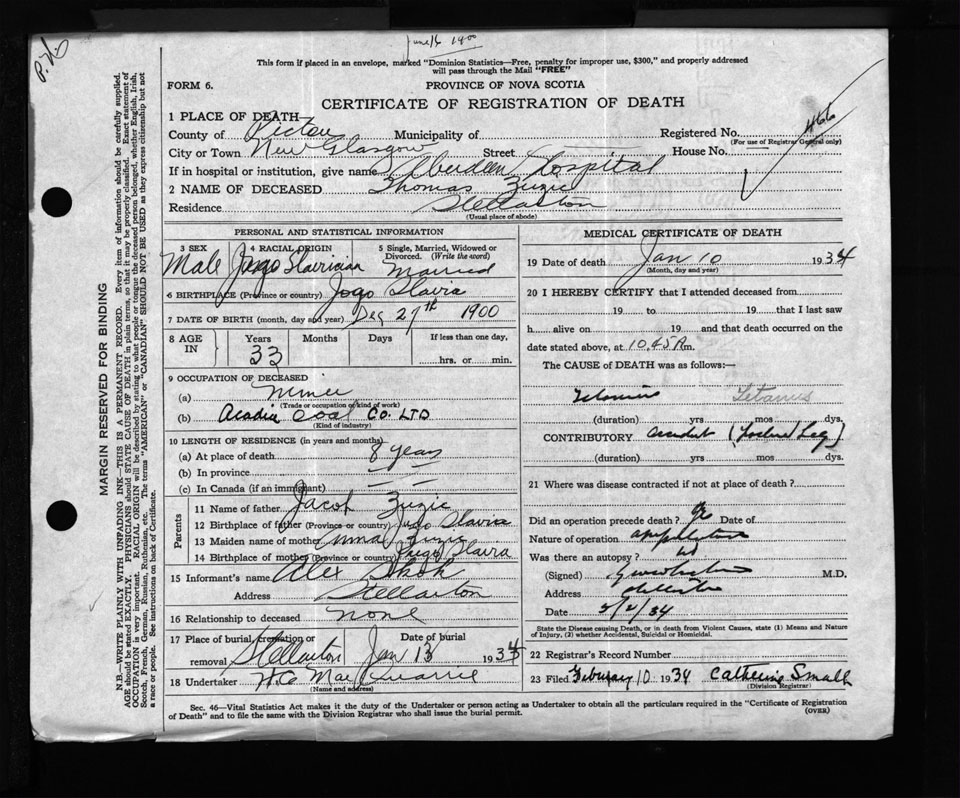 June 16 1900
This form if placed in an envelope, marked "Dominion Statistics—Free, penalty for improper use, $300," and properly addressed
will pass through the Mail "FREE"
FORM 6.
PROVINCE OF NOVA SCOTIA
CERTIFICATE OF REGISTRATION OF DEATH
1 PLACE OF DEATH—
County of Pictou Municipality of Registered No.
(For use of Registrar General only)
City or Town New Glasgow Street House No.
If in hospital or institution, give name Aberdeen Hospital
2 NAME OF DECEASED Thomas Zuzic
Residence Stellarton
(Usual place of abode)
PERSONAL AND STATISTICAL INFORMATION
3 SEX Male
4 RACIAL ORIGIN Jugo Slavician
5 Single, Married, Widowed or Divorced. (Write the word) Married
6 BIRTHPLACE (Province or country) Jogo Slavia
7 DATE OF BIRTH (month, day and year) Dec 27th 1900
8 AGE IN Years 33 Months Days If less than one day, hrs. or min.
9 OCCUPATION OF DECEASED
(a) Miner
(Trade or occupation or kind of work)
(b) Acadia Coal Co. LTD
(Kind of industry)
10 LENGTH OF RESIDENCE (in years and months)
(a) At place of death 8 years
(b) In province — —
(c) In Canada (if an immigrant) — —
Parents
11 Name of father Jacob Zuzic
12 Birthplace of father (Province or country) Jugo Slavia
13 Maiden name of mother Anna Zuzic
14 Birthplace of mother (Province or country) Jugo Slavia
15 Informant's name Alex Shok
Address Stellarton
16 Relationship to deceased none
17 Place of burial, cremation or removal Stellarton Date of burial Jan 13 1934
18 Undertaker
(Name and address)
MEDICAL CERTIFICATE OF DEATH
19 Date of death Jan 10 1934
(Month, day and year)
20 I HEREBY CERTIFY that I attended deceased from
19 to 19 that I last saw
h alive on 19 and that death occurred on
date stated above, at 10.45 A m.
The CAUSE of DEATH was as follows:
Tetanus Tetanus
(duration) yrs mos dys.
CONTRIBUTORY accident
(duration) yrs mos dys.
21 Where was disease contracted if not at place of death?
Did an operation precede death? Date of
Nature of operation amputation
Was there an autopsy? no
(Signed) M.D.
Address Stellarton
Date 5/2/34
State the Disease causing Death, or in death from Violent Causes, state (1) Means and Nature
of Injury, (2) whether Accidental, Suicidal or Homicidal.
22 Registrar's Record Number
23 Filed February 10 1934 Catherine Small
(Division Registrar)
Sec. 46—Vital Statistics Act makes it the duty of the Undertaker or person acting as Undertaker to obtain all the particulars required in the "Certificate of Registration
of Death" and to file the same with the Division Registrar who shall issue the burial permit.
(OVER)
MARGIN RESERVED FOR BINDING
N.B.—WRITE PLAINLY WITH UNFADING INK—THIS IS A PERMANENT RECORD. Every item of information should be carefully supplied.
AGE should be stated EXACTLY. PHYSICIANS should STATE CAUSE OF DEATH in plain terms, so that it may be properly classified. Exact statement of
OCCUPATION is very important. RACIAL ORIGIN will be described by stating to what people or tongue the deceased person belonged, whether English, Irish,
Scotch, French, German, Russian, Ruthenian, etc. The terms "AMERICAN" or "CANADIAN" SHOULD NOT BE USED as they express citizenship but not
a race or people. See instructions on back of Certificate.